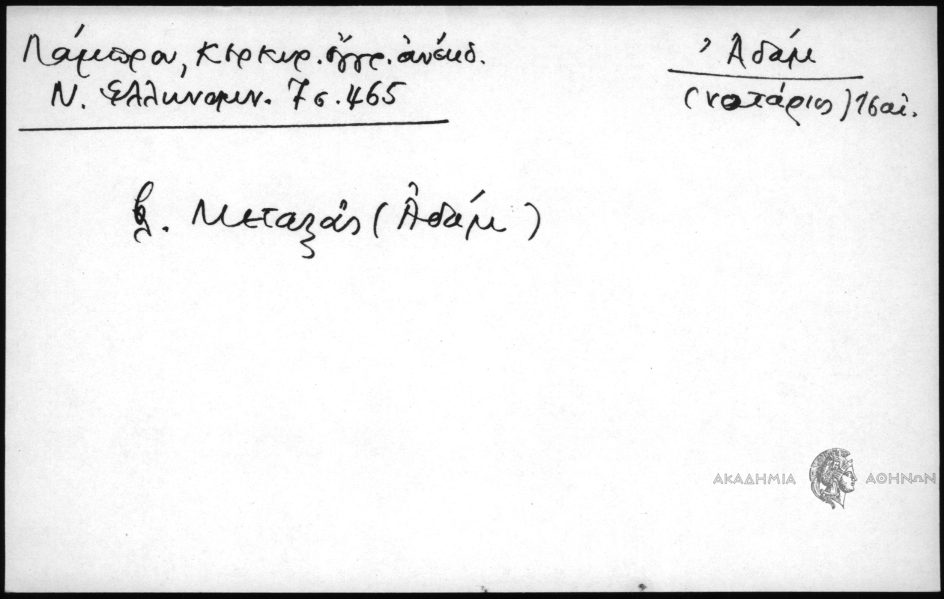 Λάμπρου, Κερκυρ. ἔγγρ. ἀνέκδ.
Ν. Ἑλληνομν. 7 σ. 465
Ἀδάμ
(νοτάριος) 16 αἰ.
β. Μεταξάς (Ἀδάμ)
ΑΚΑΔΗΜΙΑ ΑΘΗΝΩΝ